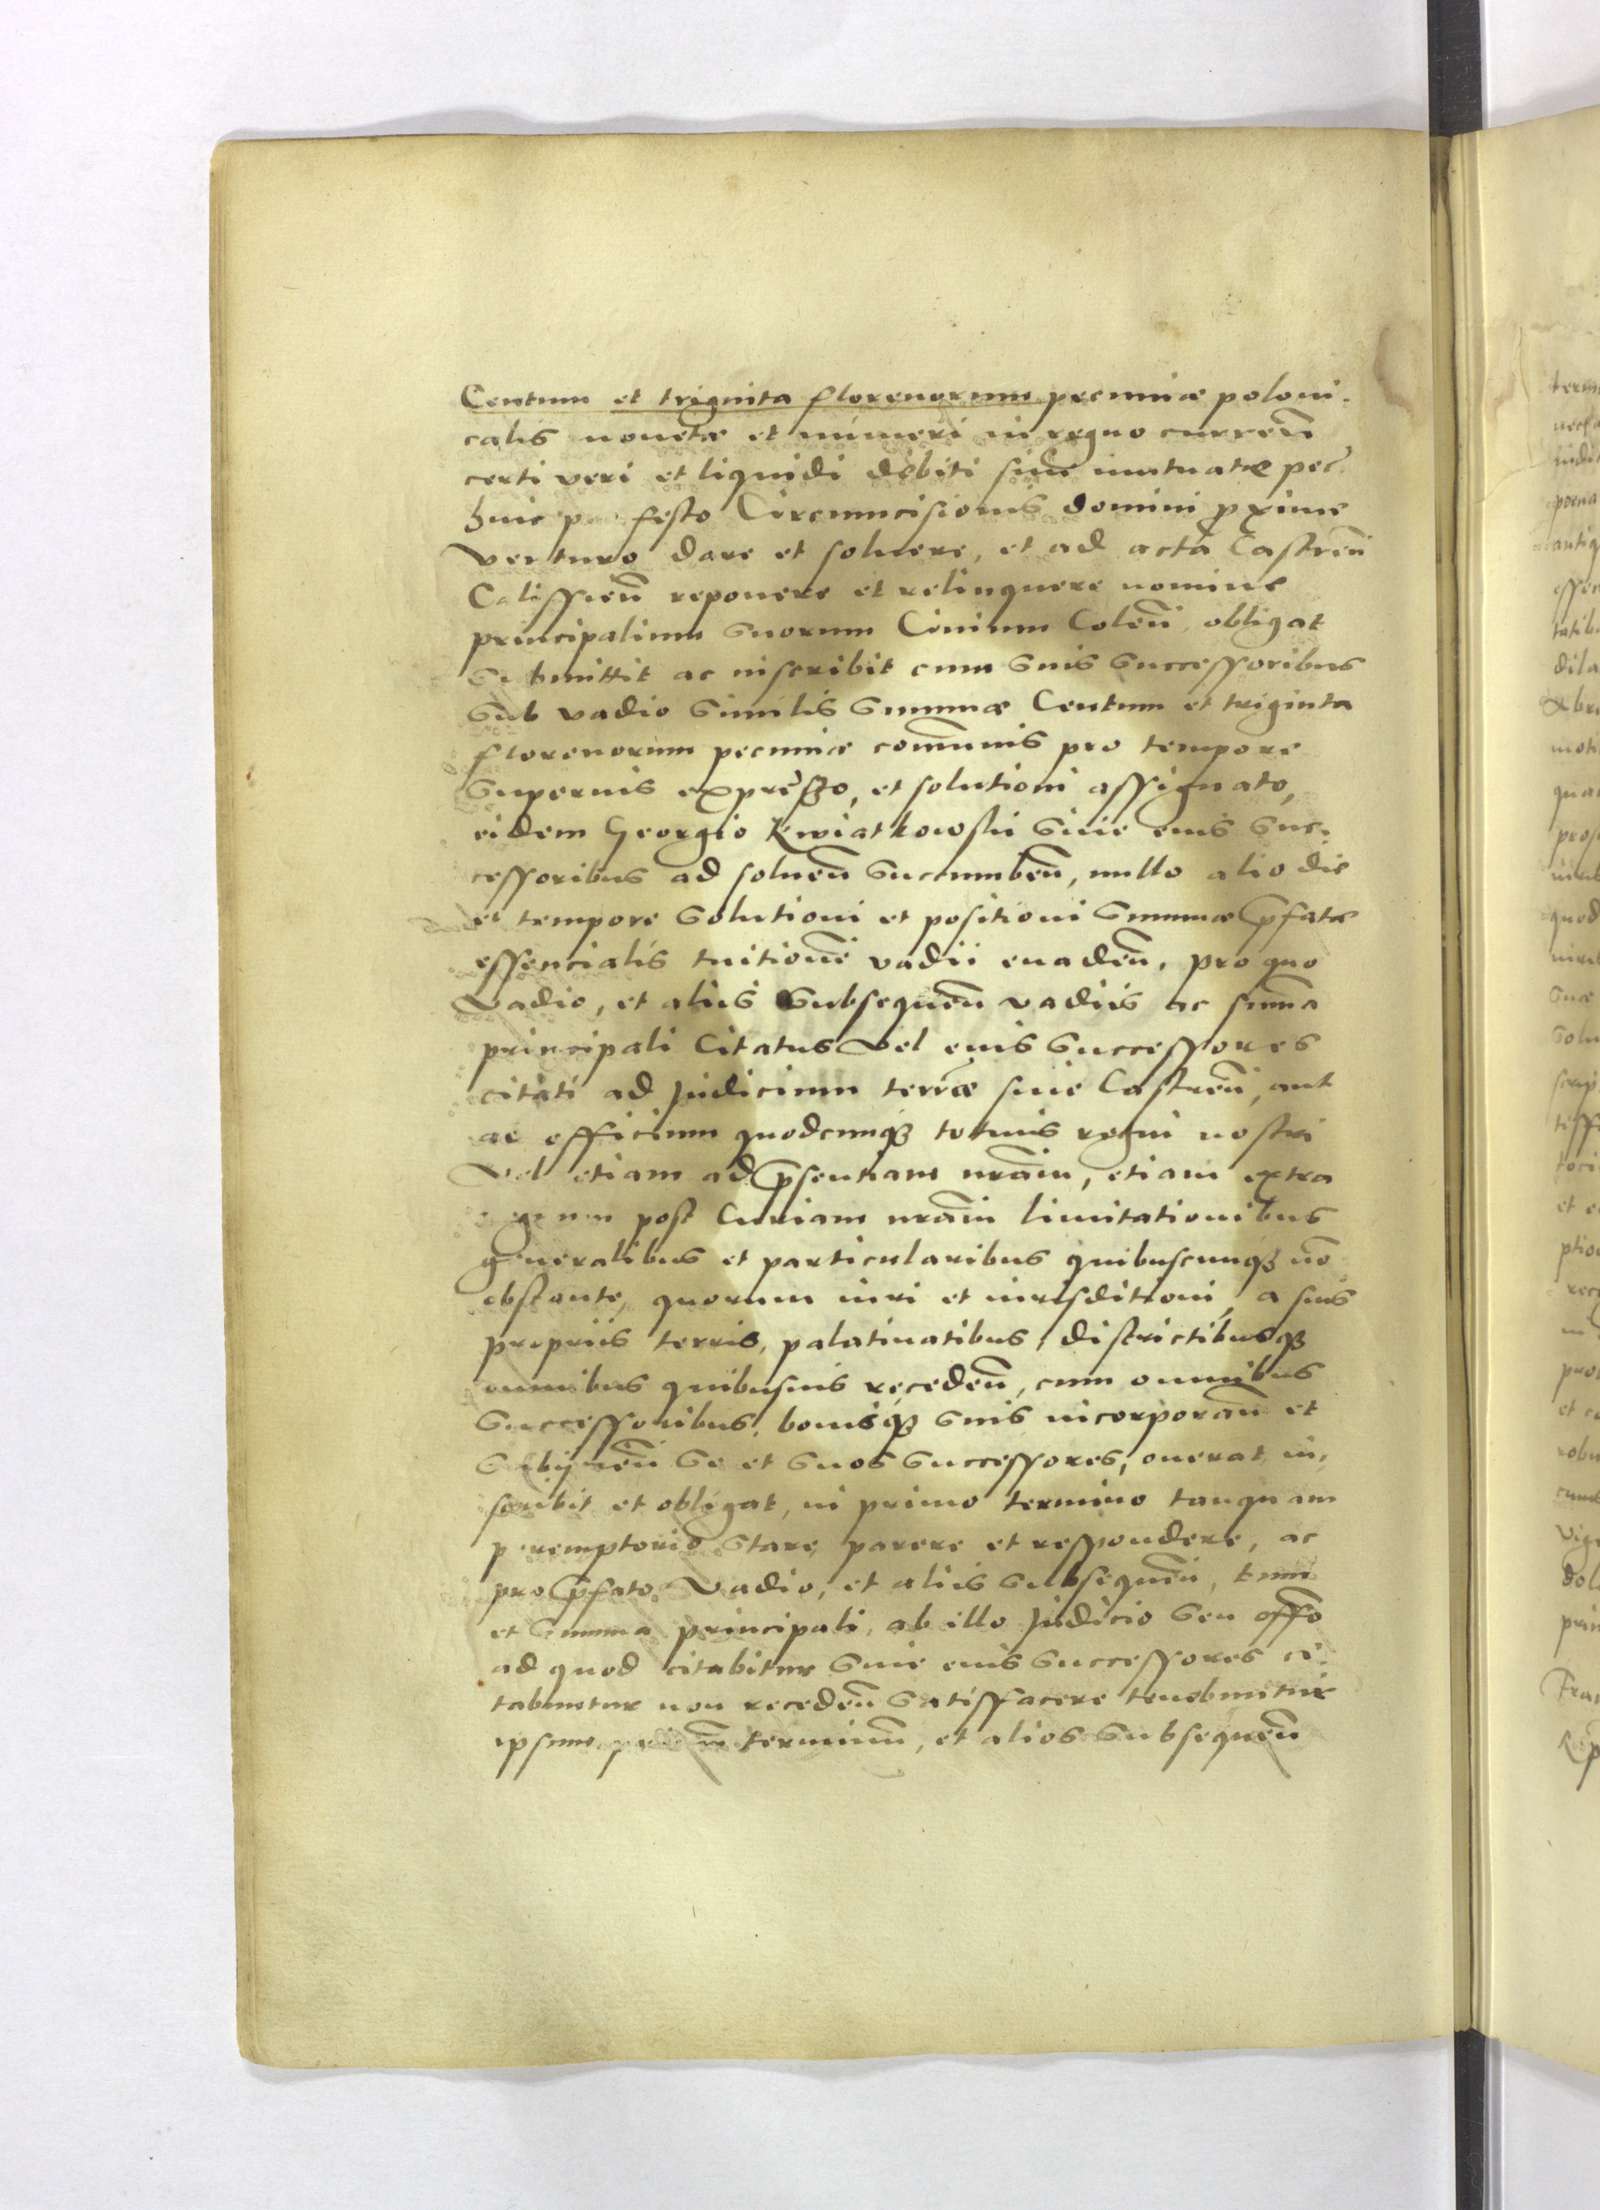 Centum et triginta florenorum pecuniæ poloni-
calis monetæ et numeri in regno curreñ
certi veri et liquidi debiti siue mutuatæ pec̃
huic pro festo Circumcisionis domini proxime
venturo dare et soluere, et ad acta Castreñ
Calissieñ reponere et relinquere nomine
principalium suorum Civium Coleñ obligat
submittit ac inscribit cum suis successoribus
sub vadio similis summæ Centum et triginta
florenorum pecuniæ com̃unis pro tempore
superius expresso, et solutioni assignato,
eidem Georgio Kwiatkowski siue eius suc-
cessoribus ad solueñ succumbeñ, nullo alio die
et tempore solutioni et positioni summæ p̃fatæ
essencialis tuitioñe vadii euadeñ, pro quo
vadio, et aliis subsequeñ vadiis ac sum̃a
principali citatus vel eius successores
citati ad Judicium terræ siue Castreñ, aut
ac officium quodcunq3 totius regni nostri
vel etiam ad p̃sentiam nr̃am, etiam extra
regnum post Curiam nr̃am limitationibus
generalibus et particularibus quibuscunq3 nõ
obstante, quorum iuri et iurisditioni, a suis
propriis terris, palatinatibus, districtibusq3
omnibus quibusuis recedeñ, cum omnibus
successoribus, bonisq3 suis incorporañ et
subijceñ se et suos successores, onerat in-
scribit et obligat, in primo termino tanquam
peremptorio stare parere et respondere, ac
pro p̃fato vadio, et aliis subsequeñ, tum
et summa principali, ab illo Judicio seu off̃o
ad quod citabitur siue eius successores ci-
tabuntur non recedeñ satisfacere tenebuntur
ipsum primũ terminũ, et alios subsequeñ